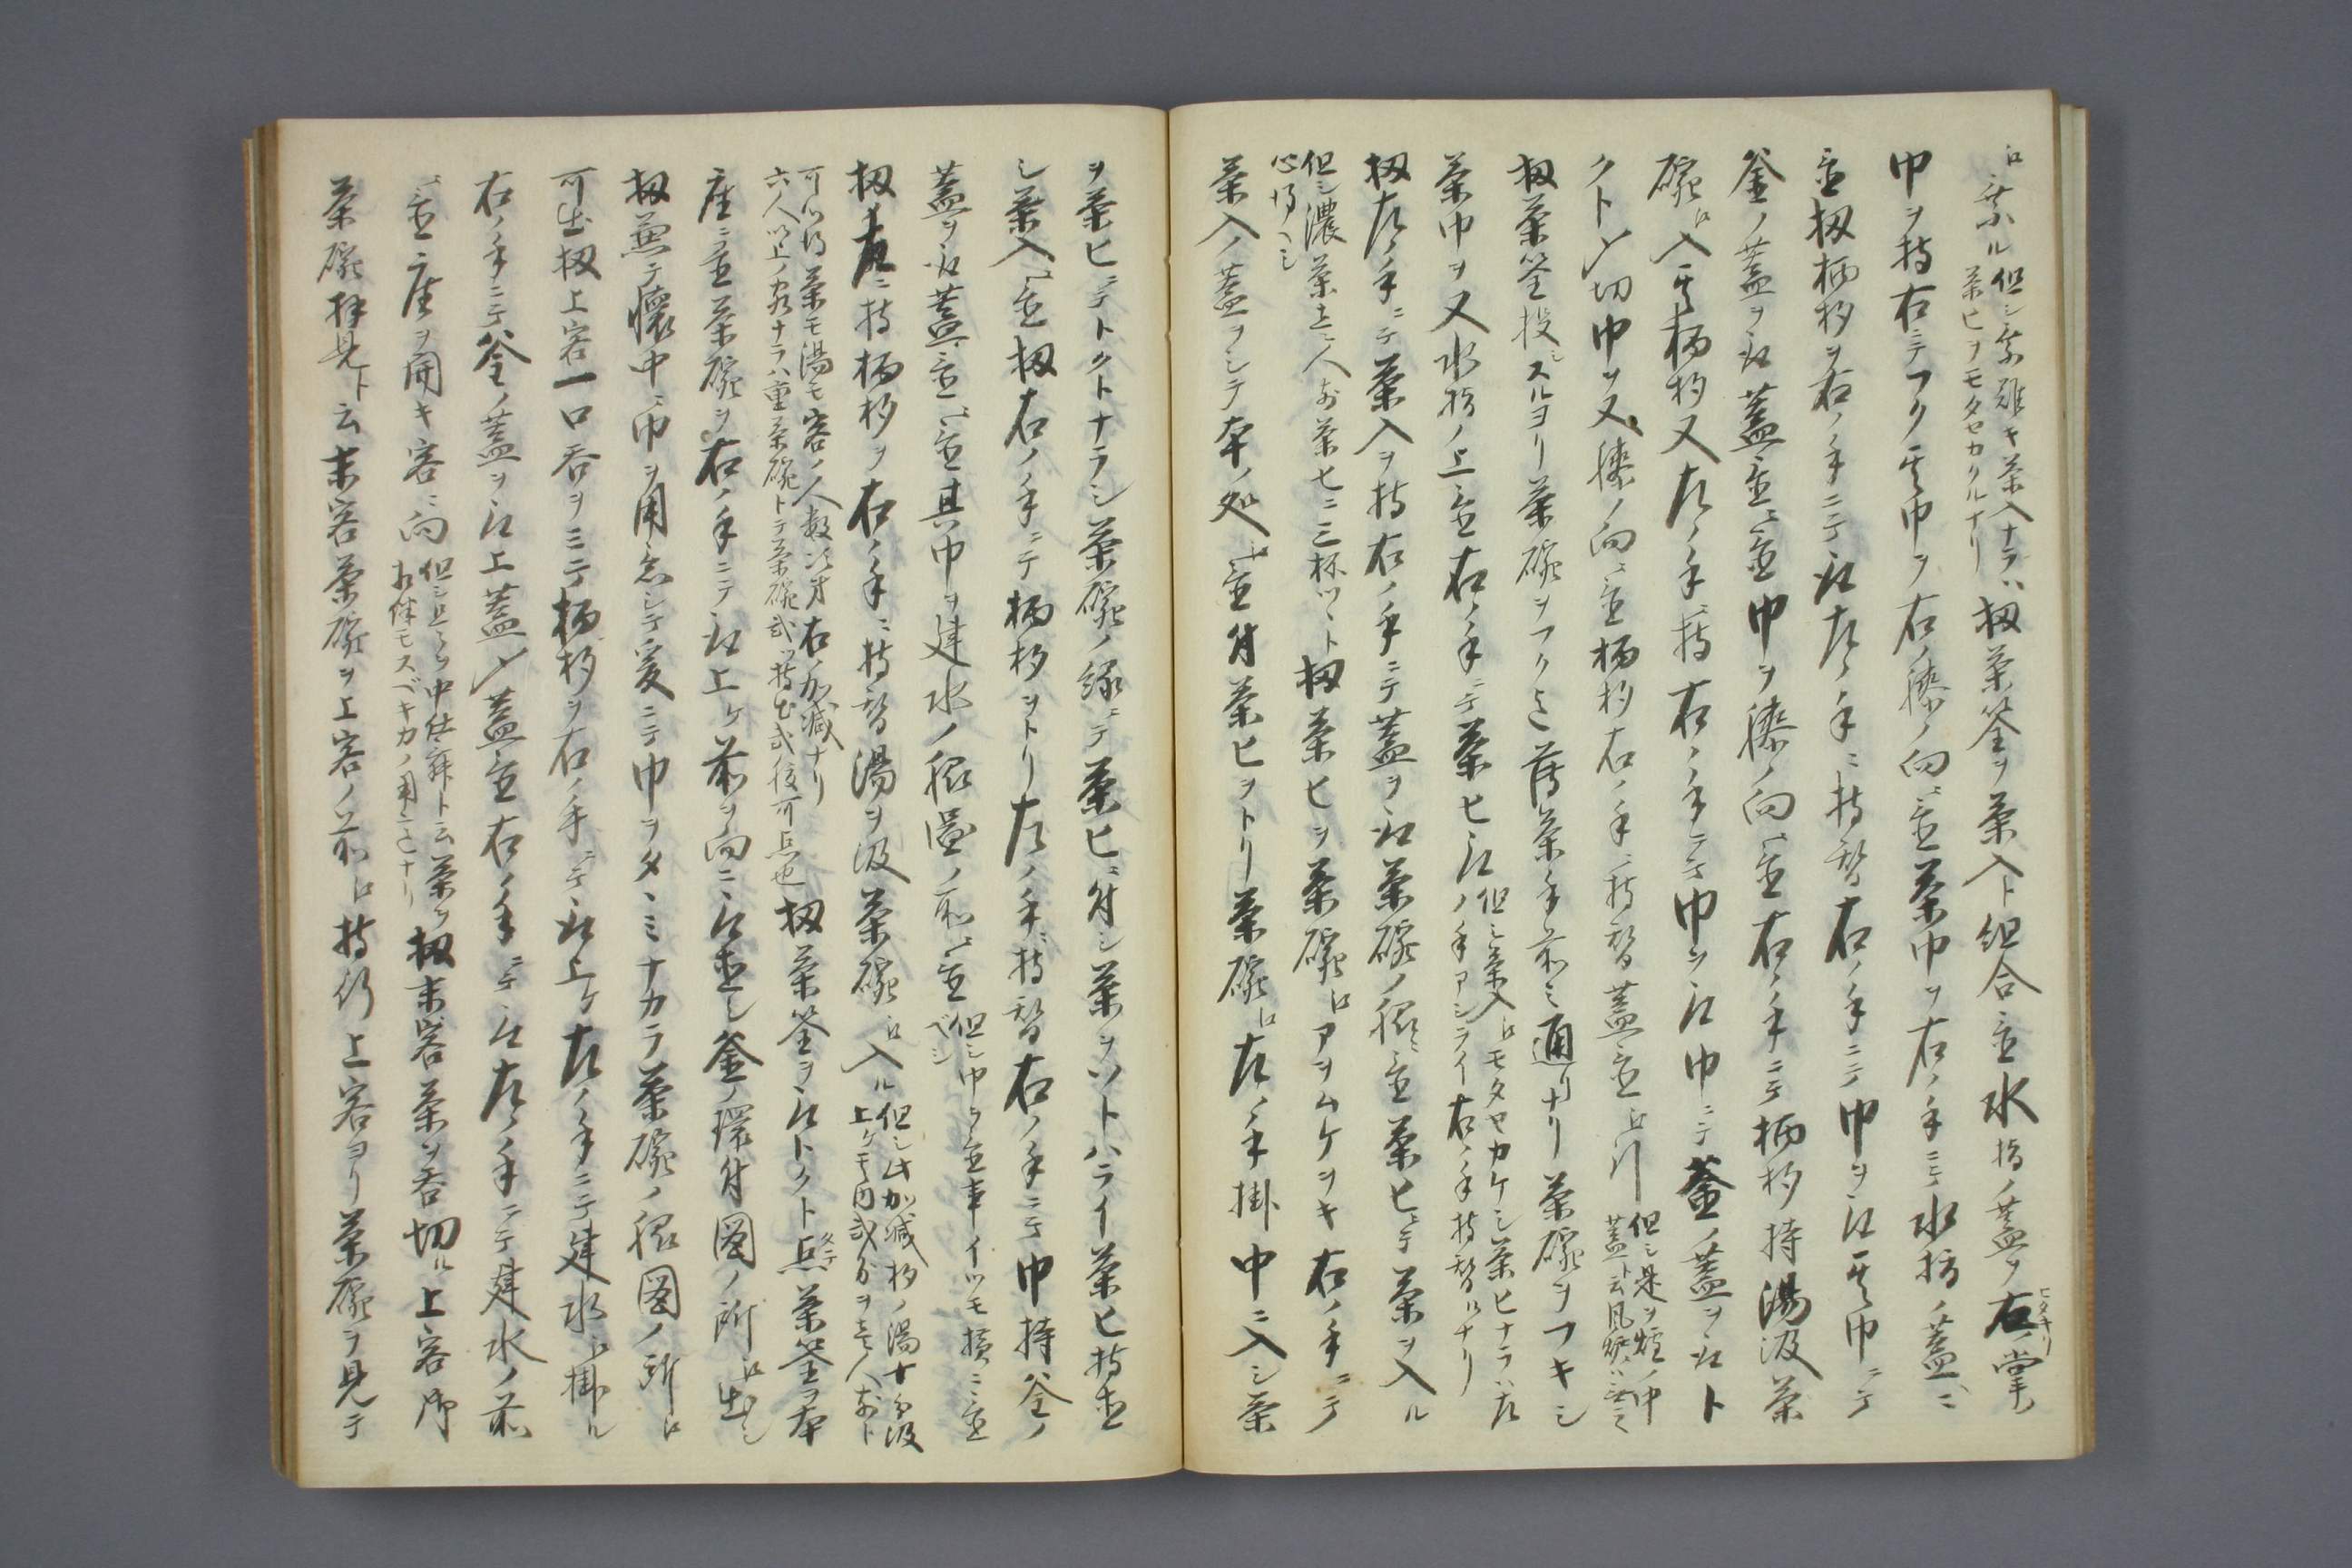 江乗ル 但シ乗難キ茶入ナラハ 茶ヒヲモタセカクルナリ 扨茶筌ヲ茶入ト組合置水指ノ蓋ヲ右ノ掌
巾ヲ持右ニテフク其巾ヲ右ノ膝ノ向ニ置茶巾ヲ右ノ手ニテ水指ノ蓋ニ
置扨柄杓ヲ右ノ手ニテ取左ノ手ニ持替右ノ手ニテ巾ヲ取其巾ニテ
釜ノ蓋ヲ取蓋置ニ置巾ヲ膝ノ向ニ置右ノ手ニテ柄杓持湯汲茶
碗江入其柄杓又左ノ手ニ持右ノ手ニテ巾ヲ取巾ニテ釜ノ蓋ヲ取ト
クト〆切巾ヲ又膝ノ向ニ置柄杓右ノ手ニ持替蓋置江引 但シ是ヲ炉ノ中 蓋ト云風炉ニハ
扨茶筌投シスルヨリ茶碗ヲフク迄薄茶手前之通リナリ茶碗ヲフキシ
茶巾ヲ又水指ノ上ニ置右ノ手ニテ茶ヒ取 但シ茶入江モタセカケシ茶ヒナラハ左 ノ手アシライ右ノ手持替ルナリ
扨左ノ手ニテ茶入ヲ持右ノ手ニテ蓋ヲ取茶碗ノ脇ニ置茶ヒニテ茶ヲ入ル
但シ濃茶立ニ人前茶ヒニ三杯ツヽト 心得ヘシ 扨茶ヒヲ茶碗江アヲムケヲキ右ノ手ニテ
茶入ノ蓋ヲシテ本ノ処江置付茶ヒヲトリ茶碗江左ノ手掛中ニ入シ茶
ヲ茶ヒニテトクトナラシ茶碗ノ縁ニテ茶ヒニ付シ茶ヲソトハライ茶ヒ持直
シ茶入ニ置扨右ノ手ニテ柄杓ヲトリ左ノ手ニ持替右ノ手ニテ巾持釜ノ
蓋ヲ取蓋置ニ置其巾ヲ建水ノ脇ノ前ニ置 但シ巾ヲ置事イツモ横ニ置 ベシ
扨左ニ持柄杓ヲ右ノ手ニ持替湯ヲ汲茶碗江入ル 但シ此加減杓ノ湯十分汲 上ケ其内弐分ヲ壱人前ト
可心得茶モ湯モ客ノ人数次第右ノ加減ナリ 六人以上ノ客ナラハ重茶碗トテ茶碗弐ツ持出弐後可点也 扨茶筌ヲ取トクト点茶筌ヲ本
座ニ置茶碗ヲ右ノ手ニテ取上ケ前ヲ向ニ取直シ釜ノ環付図ノ所江出シ
扨兼テ懐中ニ巾ヲ用意シテ爰ニテ巾ヲタヽミナカラ茶碗ノ脇図ノ所江
可出扨上客一口呑ヲミテ柄杓ヲ右ノ手ニテ取上ケ左ノ手ニテ建水江掛ル
右ノ手ニテ釜ノ蓋ヲ取上蓋〆蓋置右ノ手ニテ取左ノ手ニテ建水ノ前
ニ置座ヲ開キ客ニ向 但シ是ヲ中仕舞ト云茶ヲ 扨末客茶ヲ呑切ル上客御
茶碗拝見ト云末客茶碗ヲ上客ノ前江持行上客ヨリ茶碗ヲ見テ